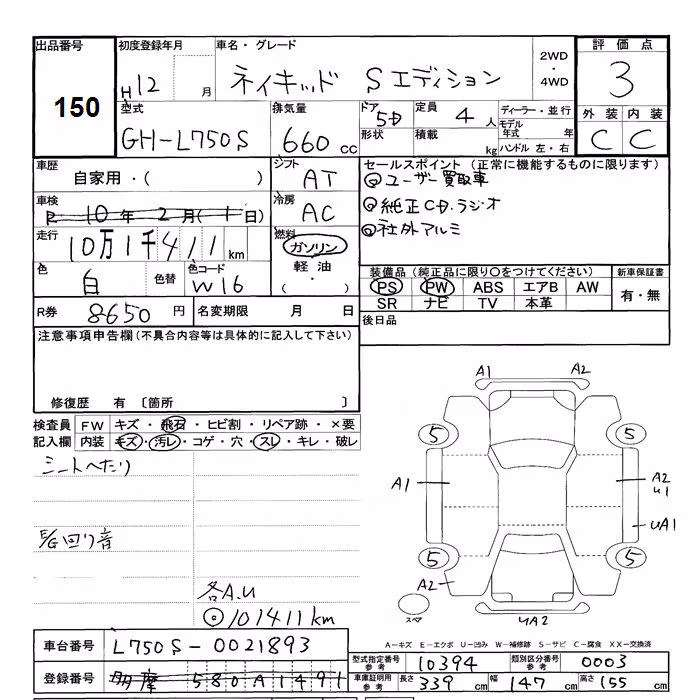 出品番号
150
初度登録年月
H12 月
車名・グレード
ネイキッド Sエディション
2WD
・
4WD
評価点
3
型式
GH-L750S
排気量
660 cc
ドア
5D
形状
定員
4 人
積載
kg
ディーラー・並行
モデル
年式 年
ハンドル 左・右
外装 内装
C C
車歴
自家用・( )
シフト
AT
セールスポイント (正常に機能するものに限ります)
◎ユーザー買取車
◎純正CD.ラジオ
◎社外アルミ
車検
R 10年 2月( 1日)
冷房
AC
走行
10万1千411 km
燃料
ガソリン
軽油・
( )
色
白
色替
色コード
W16
装備品 (純正品に限り○をつけてください)
PS PW ABS エアB AW
SR ナビ TV 本革
新車保証書
有・無
R券
8650 円
名変期限 月 日
後日品
注意事項申告欄(不具合内容等は具体的に記入して下さい)
修復歴 有 〔箇所 〕
検査員
記入欄
FW キズ・飛石・ヒビ割・リペア跡・×要
内装 キズ・汚レ・コゲ・穴・スレ・キレ・破レ
シートへたり
E/G回り音
各A.U
◎101411km
A1 A2
5 5
A1
A2
U1
UA1
5 5
A2
スペア
UA2
A-キズ E-エクボ U-凹み W-補修跡 S-サビ C-腐食 XX-交換済
車台番号
L750S-0021893
登録番号
多摩 580A1491
型式指定番号
参考
10394
類別区分番号
参考
0003
車庫証明用
参考
長さ 339 cm 幅 147 cm 高さ 155 cm